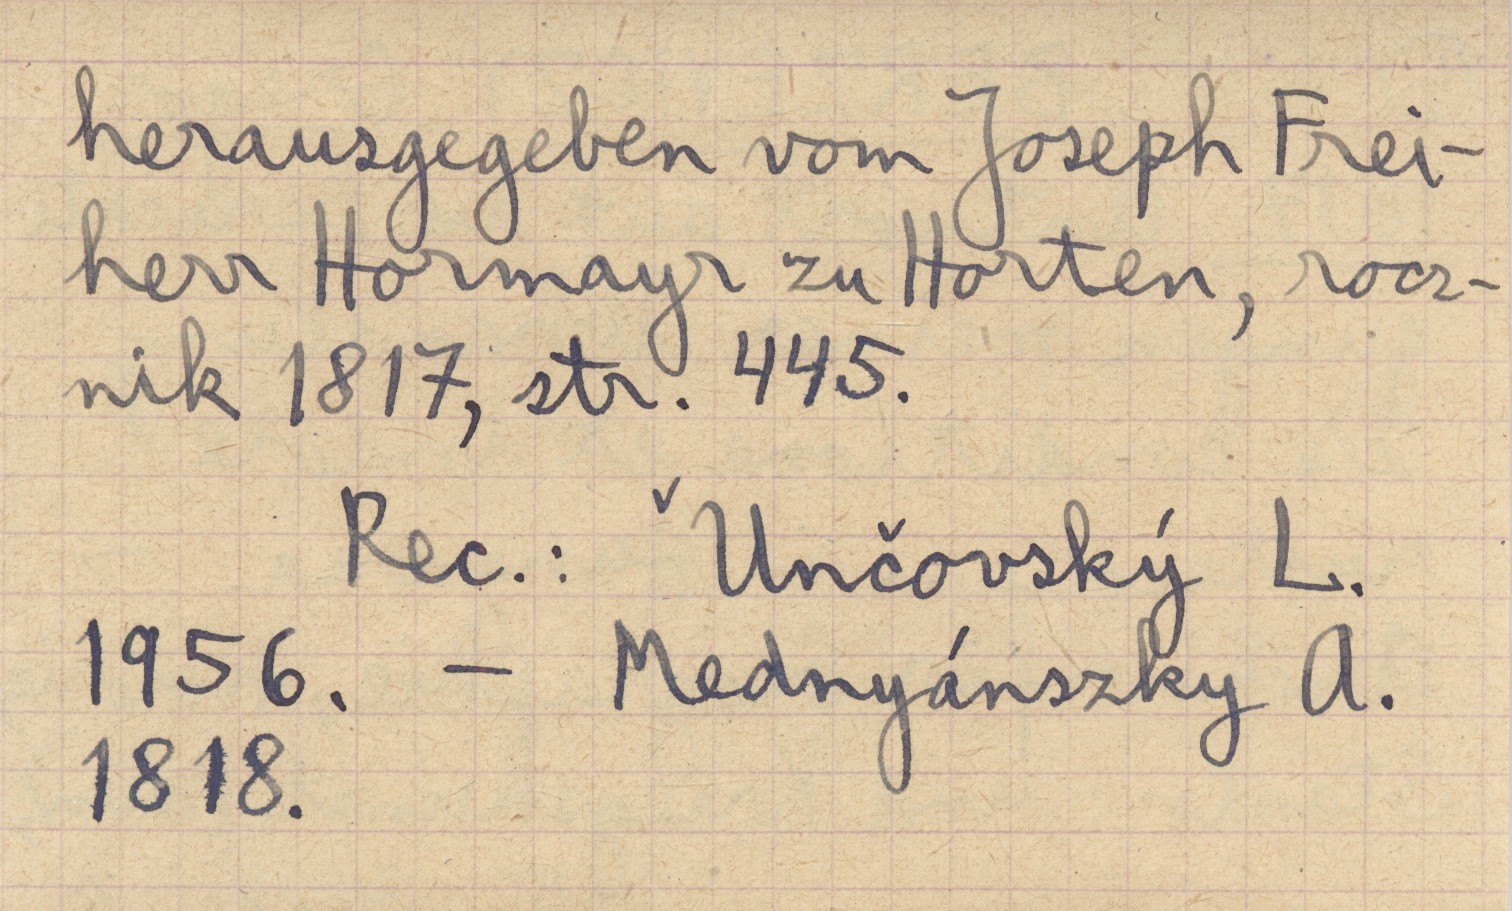 herausgegeben vom Joseph Frei-
herr Hormayr zu Horten, rocz-
nik 1817, str. 445.
Rec.: ˇUnčovský L.
1956. – Mednyánszky A.
1818.